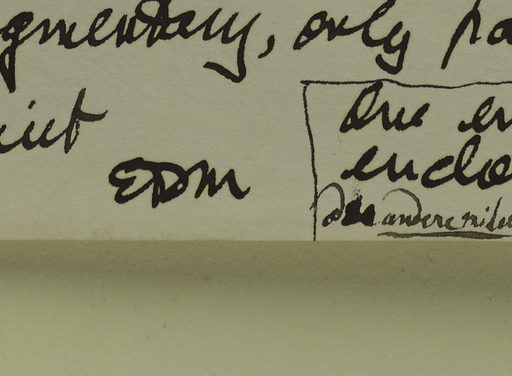 gmentary, only pa
EDM
One en
enclo
andere